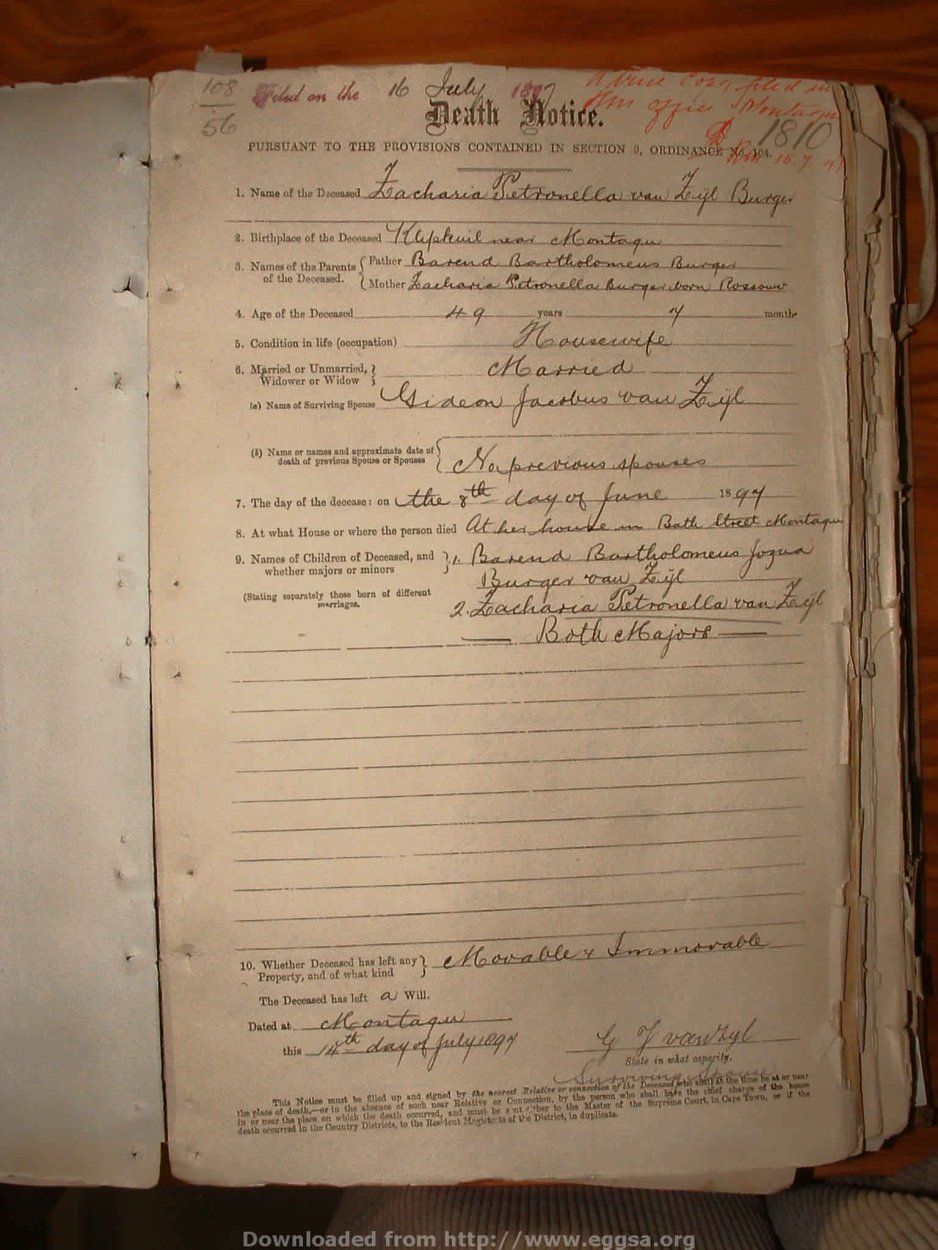 108
56
Filed on the 16 July 1897
a true Copy filed in
this office Montagu
1810
RM 15.7.97
Death Notice.
PURSUANT TO THE PROVISIONS CONTAINED IN SECTION 9, ORDINANCE No. 104.
1. Name of the Deceased Zacharia Petronella van Zijl Burger
2. Birthplace of the Deceased Klipkuil near Montagu
3. Names of the Parents of the Deceased. { Father Barend Bartholomeus Burger
Mother Zacharia Petronella Burger born Rossouw
4. Age of the Deceased 49 years 7 months
5. Condition in life (occupation) Housewife
6. Married or Unmarried, Widower or Widow } Married
(a) Name of Surviving Spouse Gideon Jacobus van Zijl
(b) Name or names and approximate date of death of previous Spouse or Spouses { No previous spouses
7. The day of the decease: on the 8th day of June 1897
8. At what House or where the person died At her house in Bath Street Montagu
9. Names of Children of Deceased, and whether majors or minors } 1. Barend Bartholomeus Jozua
Burger van Zijl
(Stating separately those born of different marriages. 2. Zacharia Petronella van Zijl
Both Majors
10. Whether Deceased has left any Property, and of what kind } Movable & Immovable
The Deceased has left a Will.
Dated at Montagu
this 14th day of July 1897 G J van Zyl
State in what capacity.
Surviving Spouse
This Notice must be filled up and signed by the nearest Relative or connection of the Deceased who shall at the time be at or near
the place of death,—or in the absence of such near Relative or Connection, by the person who shall have the chief charge of the house
in or near the place on which the death occurred, and must be sent either to the Master of the Supreme Court, in Cape Town, or if the
death occurred in the Country Districts, to the Resident Magistrate of the District, in duplicate.
Downloaded from http://www.eggsa.org